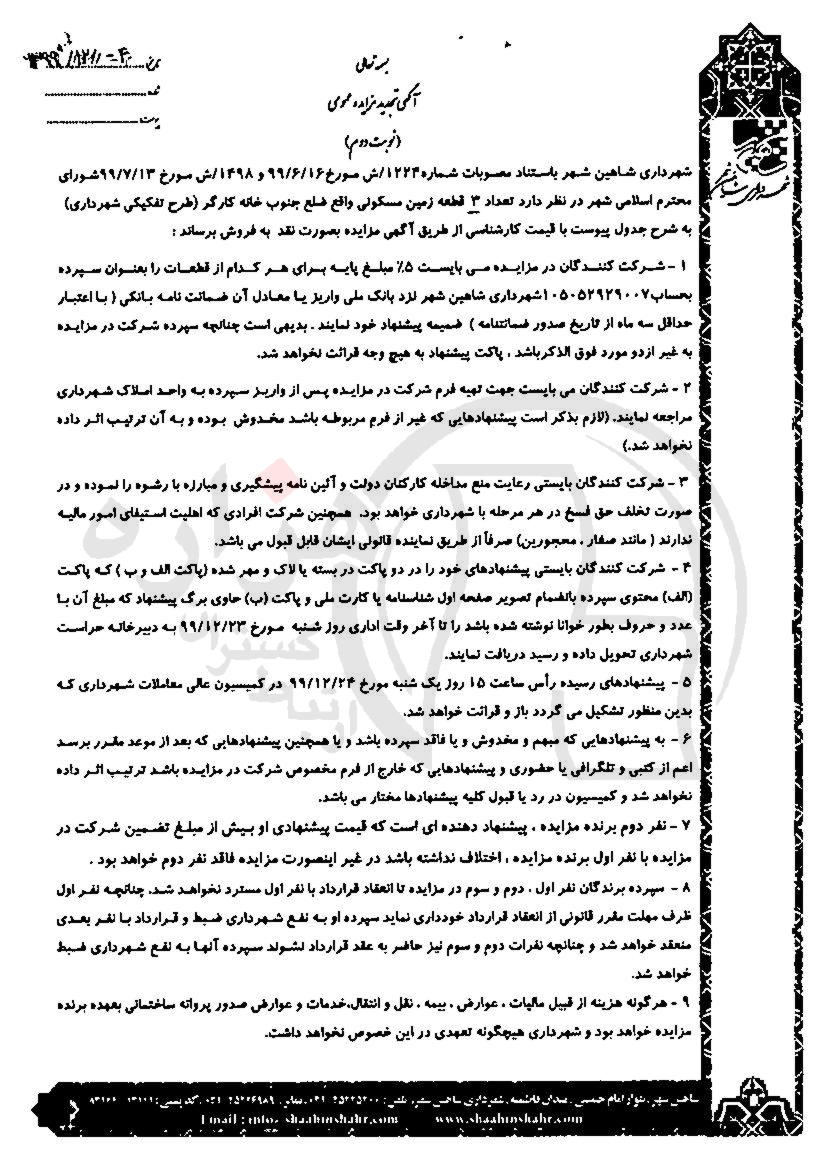 بسمه تعالی
تاریخ
شماره
پیوست
آگهی تجدید مزایده عمومی
(نوبت دوم)
شهرداری شاهین شهر باستناد مصوبات شماره۱۲۲۴/ش مورخ۹۹/۶/۱۶ و ۱۴۹۸/ش مورخ ۹۹/۷/۱۳شورای
محترم اسلامی شهر در نظر دارد تعداد ۳ قطعه زمین مسکونی واقع ضلع جنوب خانه کارگر (طرح تفکیکی شهرداری)
به شرح جدول پیوست با قیمت کارشناسی از طریق آگهی مزایده بصورت نقد به فروش برساند :
۱ – شرکت کنندگان در مزایده می بایست ۵% مبلغ پایه برای هر کدام از قطعات را بعنوان سپرده
بحساب۱۰۵۰۵۲۹۲۹۰۰۷شهرداری شاهین شهر نزد بانک ملی واریز یا معادل آن ضمانت نامه بانکی ( با اعتبار
حداقل سه ماه از تاریخ صدور ضمانتنامه ) ضمیمه پیشنهاد خود نمایند . بدیهی است چنانچه سپرده شرکت در مزایده
به غیر ازدو مورد فوق الذکرباشد ، پاکت پیشنهاد به هیچ وجه قرائت نخواهد شد.
۲ – شرکت کنندگان می بایست جهت تهیه فرم شرکت در مزایده پس از واریز سپرده به واحد املاک شهرداری
مراجعه نمایند. (لازم بذکر است پیشنهادهایی که غیر از فرم مربوطه باشد مخدوش بوده و به آن ترتیب اثر داده
نخواهد شد.)
۳ – شرکت کنندگان بایستی رعایت منع مداخله کارکنان دولت و آئین نامه پیشگیری و مبارزه با رشوه را نموده و در
صورت تخلف حق فسخ در هر مرحله با شهرداری خواهد بود. همچنین شرکت افرادی که اهلیت استیفای امور مالیه
ندارند ( مانند صغار ، محجورین) صرفاً از طریق نماینده قانونی ایشان قابل قبول می باشد.
۴ – شرکت کنندگان بایستی پیشنهادهای خود را در دو پاکت در بسته یا لاک و مهر شده (پاکت الف و ب ) که پاکت
(الف) محتوی سپرده بانضمام تصویر صفحه اول شناسنامه یا کارت ملی و پاکت (ب) حاوی برگ پیشنهاد که مبلغ آن با
عدد و حروف بطور خوانا نوشته شده باشد را تا آخر وقت اداری روز شنبه مورخ ۹۹/۱۲/۲۳ به دبیرخانه حراست
شهرداری تحویل داده و رسید دریافت نمایند.
۵ – پیشنهادهای رسیده رأس ساعت ۱۵ روز یک شنبه مورخ ۹۹/۱۲/۲۴ در کمیسیون عالی معاملات شهرداری که
بدین منظور تشکیل می گردد باز و قرائت خواهد شد.
۶ – به پیشنهادهایی که مبهم و مخدوش و یا فاقد سپرده باشد و یا همچنین پیشنهادهایی که بعد از موعد مقرر برسد
اعم از کتبی و تلگرافی یا حضوری و پیشنهادهایی که خارج از فرم مخصوص شرکت در مزایده باشد ترتیب اثر داده
نخواهد شد و کمیسیون در رد یا قبول کلیه پیشنهادها مختار می باشد.
۷ – نفر دوم برنده مزایده ، پیشنهاد دهنده ای است که قیمت پیشنهادی او بیش از مبلغ تضمین شرکت در
مزایده با نفر اول برنده مزایده ، اختلاف نداشته باشد در غیر اینصورت مزایده فاقد نفر دوم خواهد بود .
۸ – سپرده برندگان نفر اول ، دوم و سوم در مزایده تا انعقاد قرارداد با نفر اول مسترد نخواهد شد. چنانچه نفر اول
ظرف مهلت مقرر قانونی از انعقاد قرارداد خودداری نماید سپرده او به نفع شهرداری ضبط و قرارداد با نفر بعدی
منعقد خواهد شد و چنانچه نفرات دوم و سوم نیز حاضر به عقد قرارداد نشوند سپرده آنها به نفع شهرداری ضبط
خواهد شد.
۹ – هرگونه هزینه از قبیل مالیات ، عوارض ، بیمه ، نقل و انتقال،خدمات و عوارض صدور پروانه ساختمانی بعهده برنده
مزایده خواهد بود و شهرداری هیچگونه تعهدی در این خصوص نخواهد داشت.
شاهین شهر ، بلوار امام خمینی ، میدان فاطمیه ، شهرداری شاهین شهر تلفن :
Email : info@shaahinshahr.com www.shaahinshahr.com